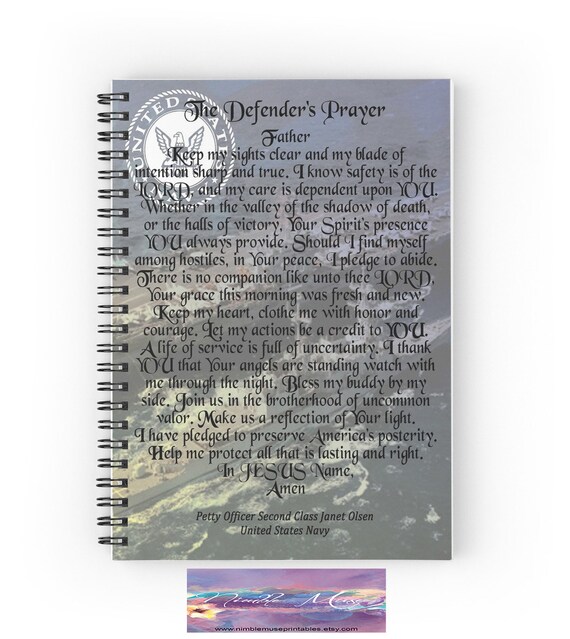 UNITED STATES
The Defender's Prayer
Father
Keep my sights clear and my blade of
intention sharp and true. I know safety is of the
LORD, and my care is dependent upon YOU.
Whether in the valley of the shadow of death,
or the halls of victory, Your Spirit's presence
YOU always provide. Should I find myself
among hostiles, in Your peace, I pledge to abide.
There is no companion like unto thee LORD,
Your grace this morning was fresh and new.
Keep my heart, clothe me with honor and
courage. Let my actions be a credit to YOU.
A life of service is full of uncertainty. I thank
YOU that Your angels are standing watch with
me through the night. Bless my buddy by my
side. Join us in the brotherhood of uncommon
valor. Make us a reflection of Your light.
I have pledged to preserve America's posterity.
Help me protect all that is lasting and right.
In JESUS Name,
Amen
Petty Officer Second Class Janet Olsen
United States Navy
Nimble Muse
www.nimblemuseprintables.etsy.com